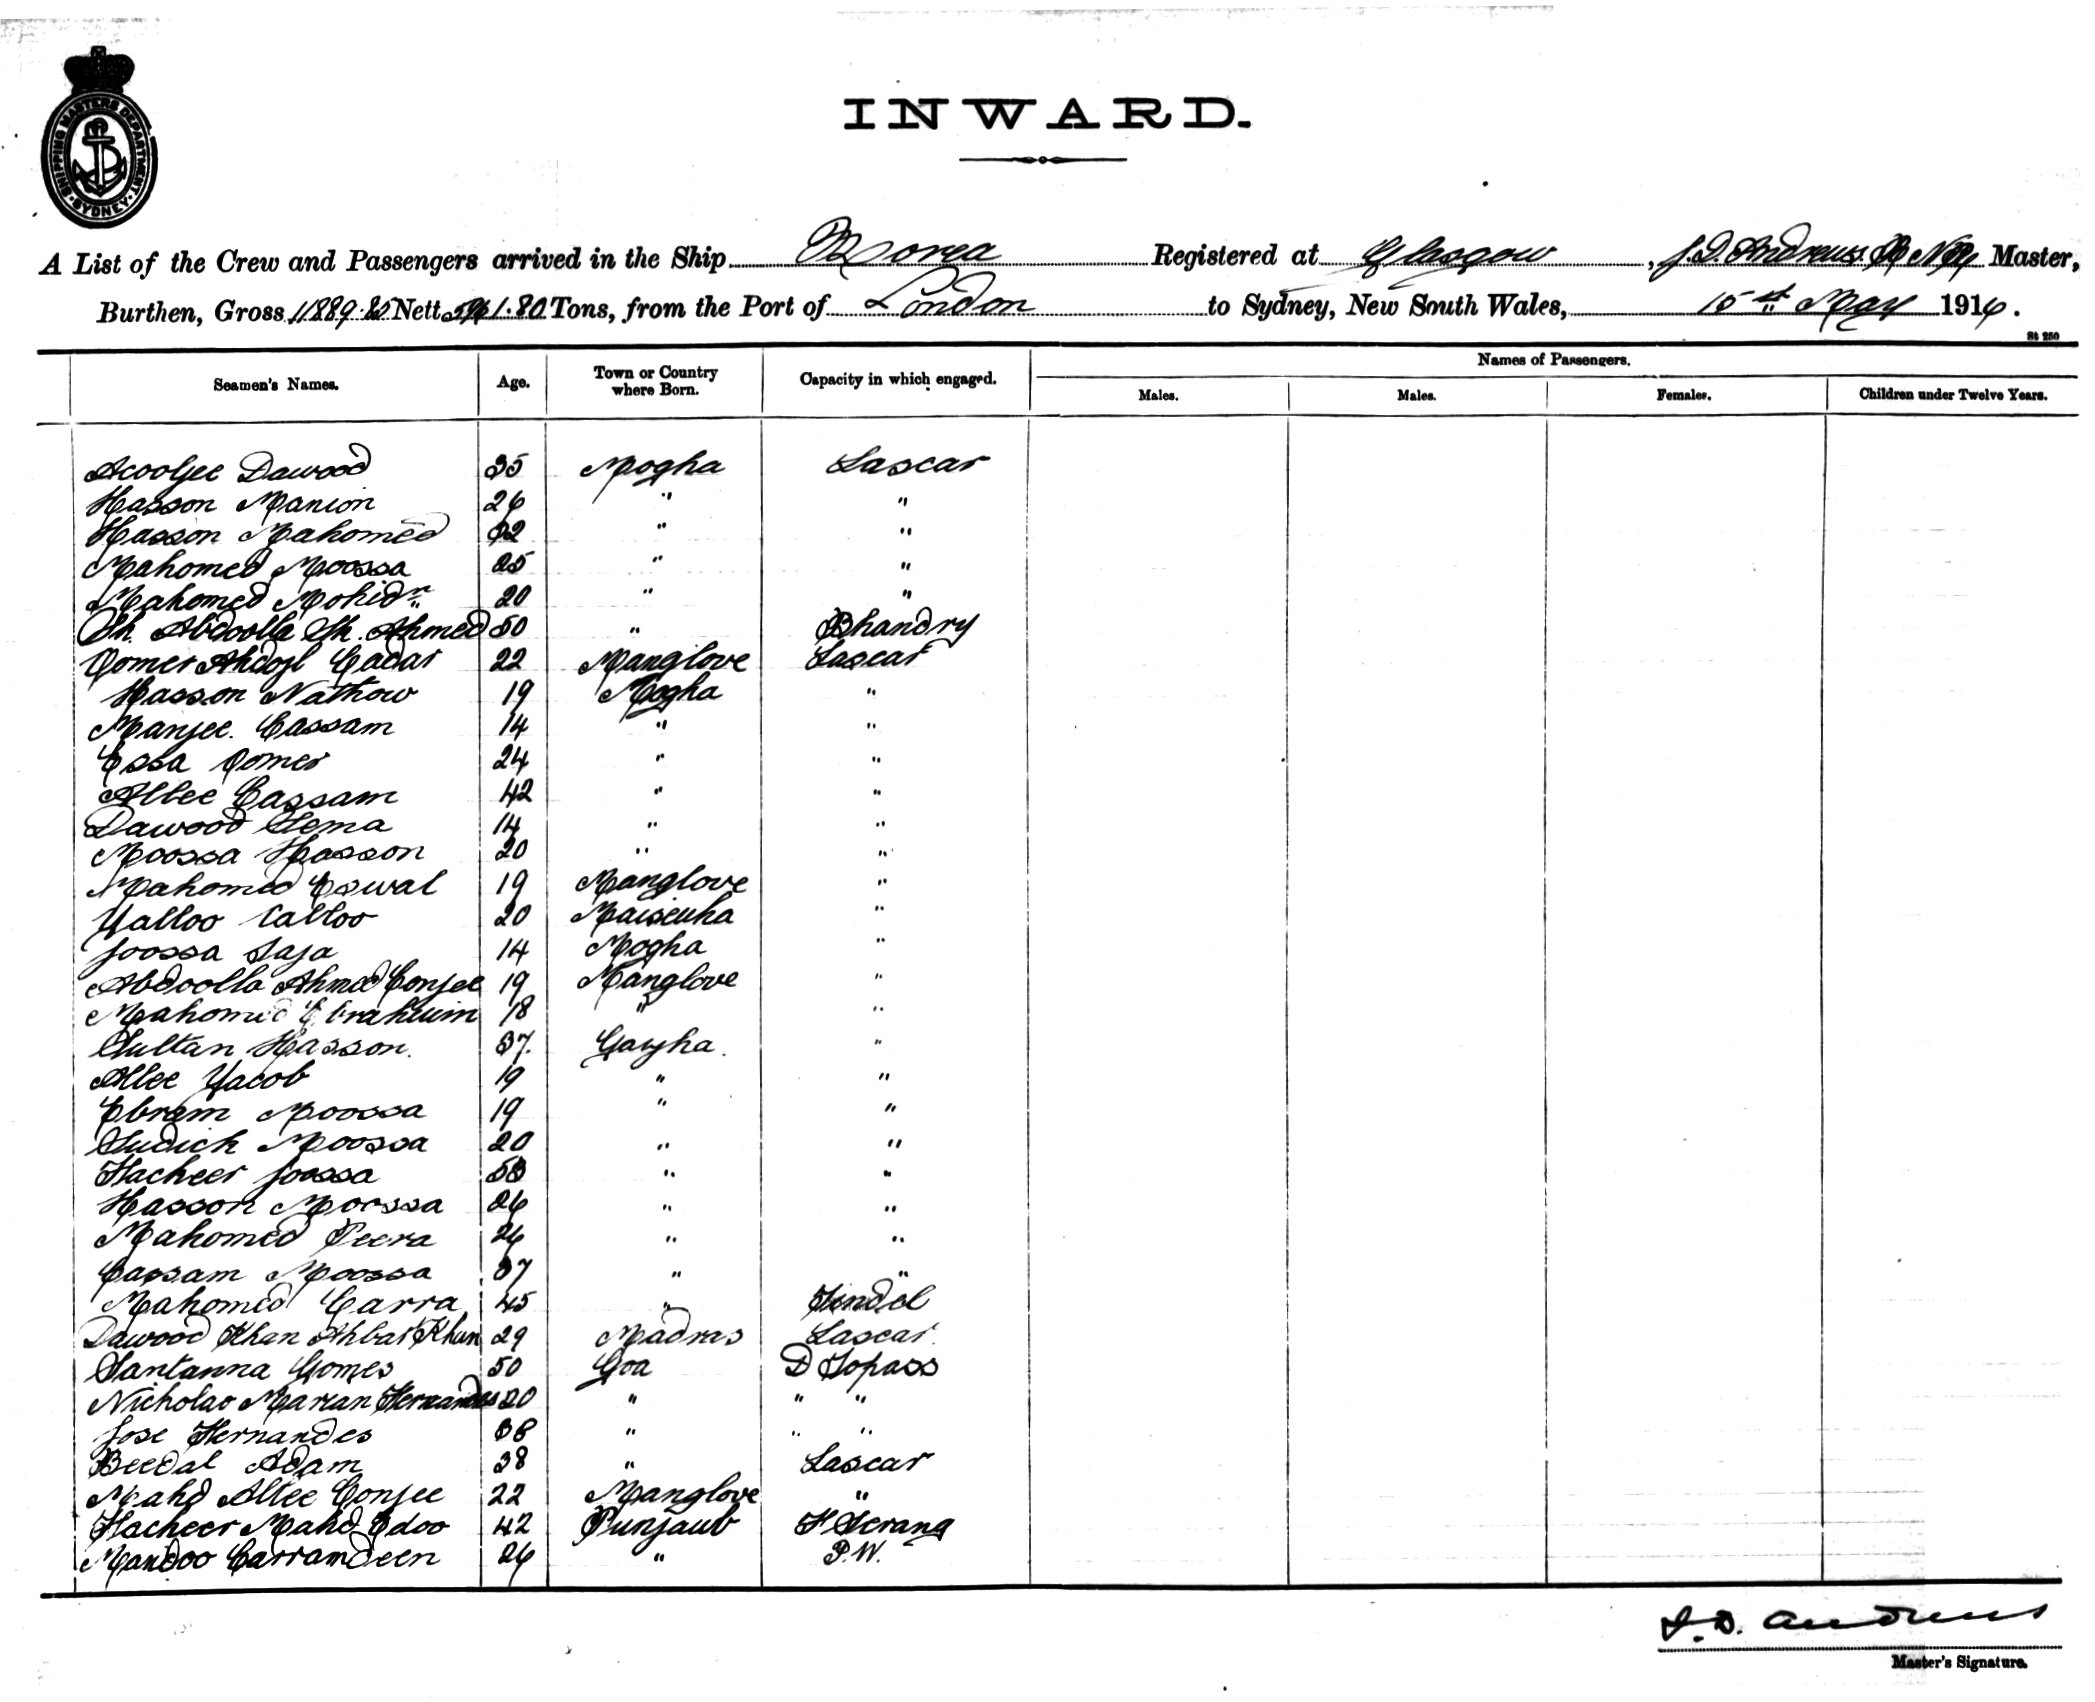 SHIPPING MASTERS DEPARTMENT
SYDNEY
INWARD.
A List of the Crew and Passengers arrived in the Ship Morea Registered at Glasgow, J.D. Andrews. Master,
Burthen, Gross Nett Tons, from the Port of London to Sydney, New South Wales, 15th May 1916.
St 250
Seamen's Names. Age. Town or Country where Born. Capacity in which engaged. Names of Passengers.
Males. Males. Females. Children under Twelve Years.
Acooljee Dawood 35 Mogha Lascar
Hasson Manion 26 " "
Hasson Mahomed 32 " "
Mahomed Moossa 25 " "
Mahomed Mohidn 20 " "
Sh. Abdoolla Sh. Ahmed 50 " Bhandry
Oomer Cadar 22 Manglove Lascar
Hasson Nathow 19 Mogha "
Manjee. Cassam 14 " "
Essa Oomer 24 " "
Allee Cassam 42 " "
Dawood Sema 14 " "
Moossa Hasson 20 " "
Mahomed Eswal 19 Manglove "
Yalloo Calloo 20 "
Joossa Jaja 14 Mogha "
Abdoolla Ahmed Conjee 19 Manglove "
Mahomed Ebrahuim 18 " "
Sultan Hasson. 37. "
Allee Yacob 19 " "
Ebram Moossa 19 " "
Sudick Moossa 20 " "
Facheer Joossa 53 " "
Hasson Moossa 26 " "
Mahomed Peera 26 " "
Cassam Moossa 37 " "
Mahomed Carra 45 " Tindel
Dawood Khan Ahbar Khan 29 Madras Lascar
Santanna Gomes 50 Goa D Topass
Nicholao Marian Fernandes 20 " " "
Jose Fernandes 38 " " "
Beedal Adam 38 " Lascar
Mahd Allee Conjee 22 Manglove "
Facheer Mahd Edoo 42 Punjaub F Serang
Mandoo Carramdeen 26 " P.W.
J.D. Andrews
Master's Signature.